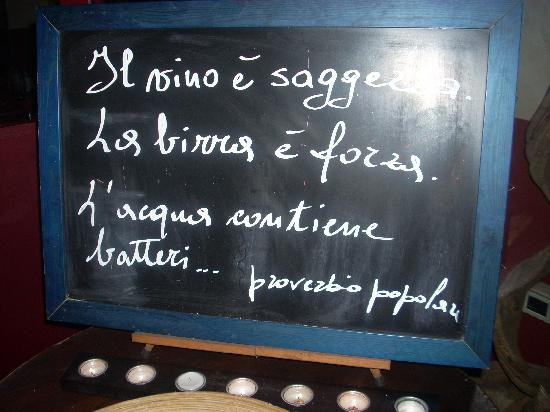 Il vino è saggezza.
La birra è forza.
L'acqua contiene
batteri...
proverbio popolare